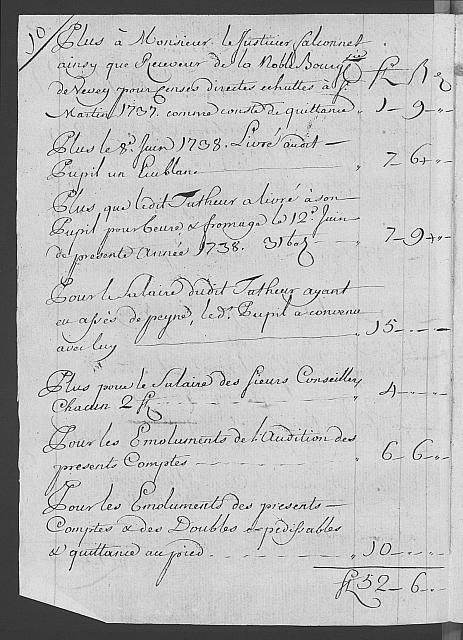 10
Plus à Monsieur le Justicier Falconnet
ainsy que Receveur de la Noble Bourg.sie fl ß d
de Vevey pour censes directes echuttes à S.t
Martin 1737. comme conste de quittance " 1 - 9 - " -
Plus le 8.e Juin 1738. Livré audit
Pupil un Ecu blanc " 7 6 + " -
Plus que ledit Tutheur a livré à son
Pupil pour beure & fromage le 12.e Juin
de presente Année 1738. " 7 - 9 + " -
Pour le Salaire dudit Tutheur ayant
eu assés de peyne, le d.t Pupil a convenu
avec luy " 15 - " - " -
Plus pour le Salaire des Sieurs Conseillers
Chacun 2 fl " 4 - " - " -
Pour les Emoluments de l'Audition des
presents Comptes " 6 - 6 - " -
Pour les Emoluments des presents
Comptes & des Doubles expedissables
& quittance au pied. " 10 - " - " -
fl 52 - 6 - " -